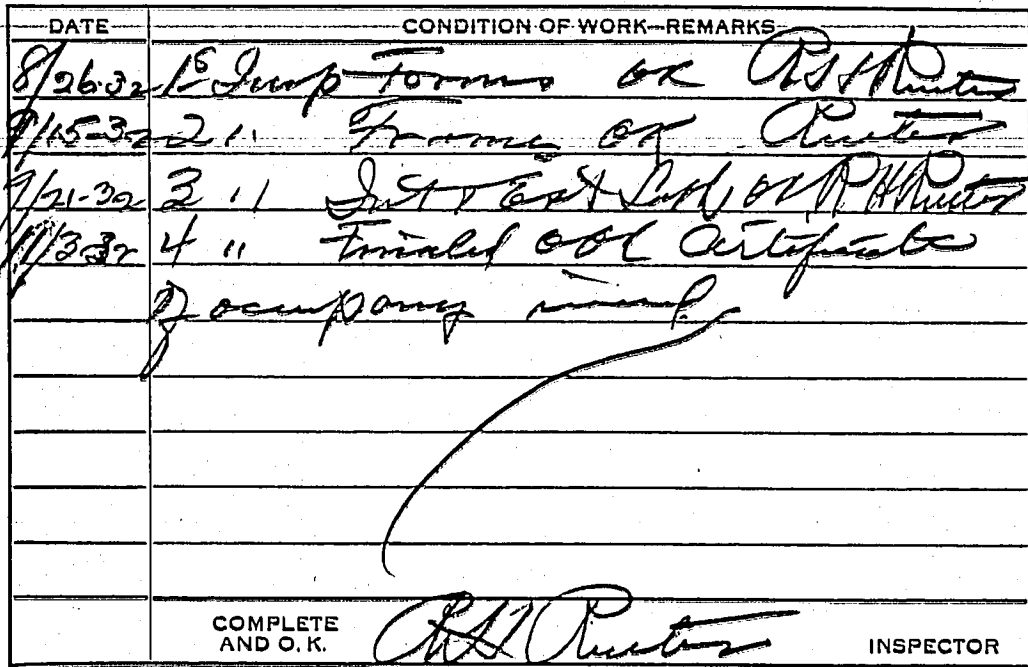 DATE CONDITION OF WORK—REMARKS
8/26-32 1s Insp Forms OK R H Rueter
9/15-32 2 " Frame OK Rueter
9/21-32 3 " Int & Ext Lath OK R H Rueter
11/3-32 4 " Finaled Certificate
of occupancy issued
COMPLETE
AND O. K. R H Rueter INSPECTOR